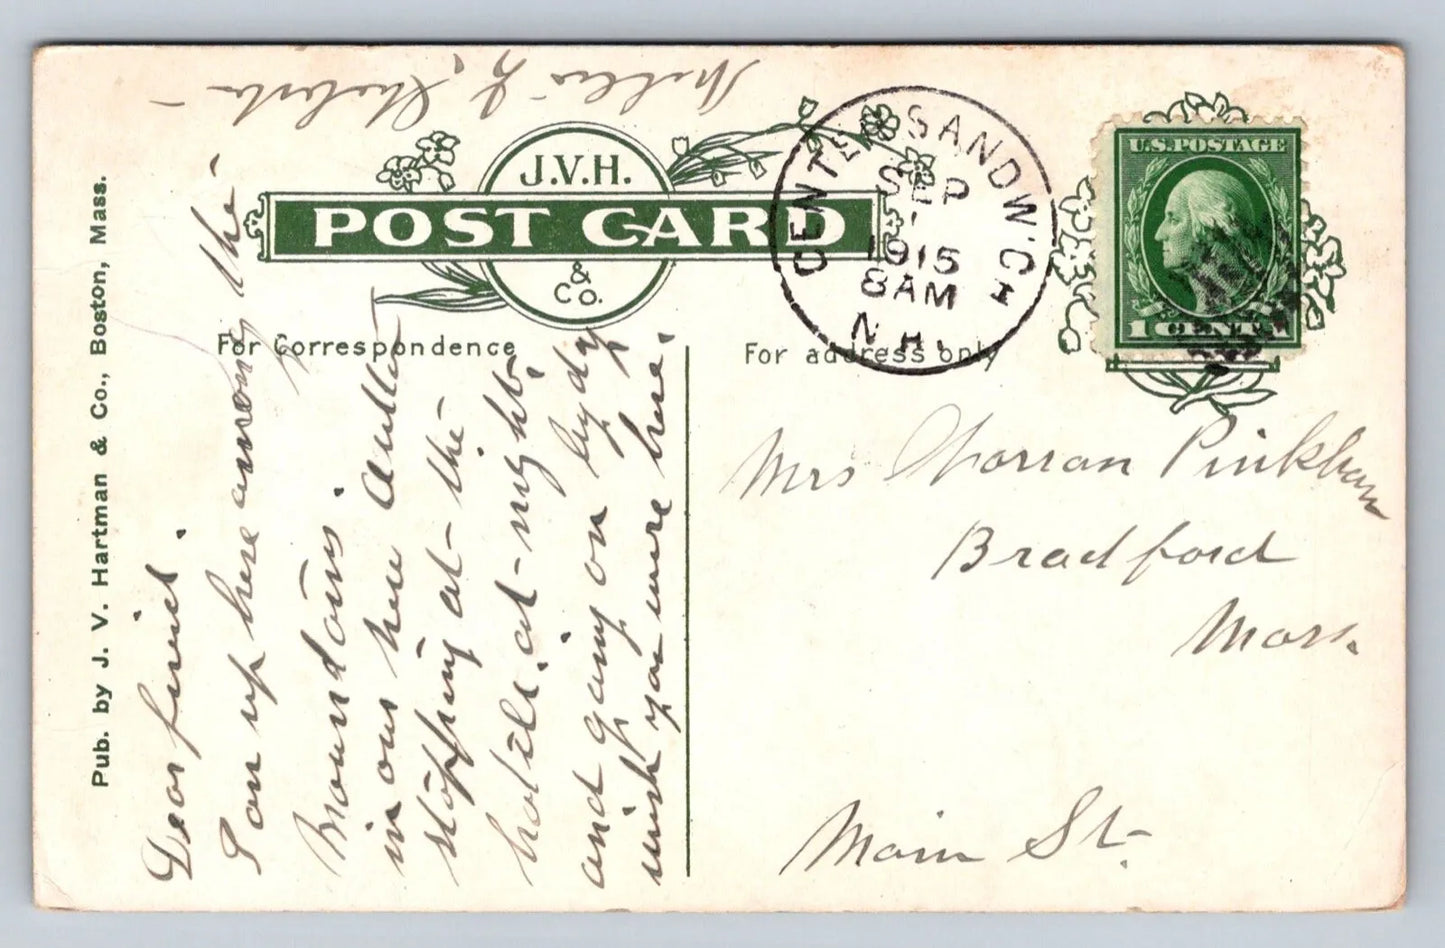 Pub. by J. V. Hartman & Co., Boston, Mass.
J.V.H.
POST CARD
& Co.
For Correspondence
For address only
CENTER SANDWICH
SEP
1
1915
8AM
N.H.
U.S. POSTAGE
1 CENT 1
Dear friend.
I am up here among the
Mountains.
in our new Auto
stopping at the
hotels at night
and going on by day
wish you were here.
Mrs Warran Pinkham
Bradford
Mass.
Main St.